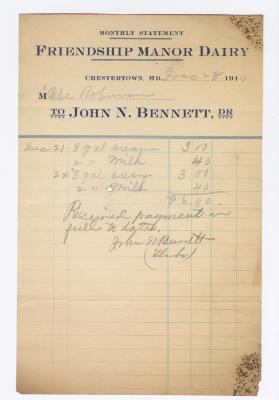 MONTHLY STATEMENT
FRIENDSHIP MANOR DAIRY
CHESTERTOWN, MD. Dec 28 191
M Abe Robinson
TO JOHN N. BENNETT, DR
Dec 21 3 gal cream 3 00
2 " Milk 40
24 3 gal cream 3 00
2 " Milk 40
$6.80
Received payment in
full to date.
John N Bennett